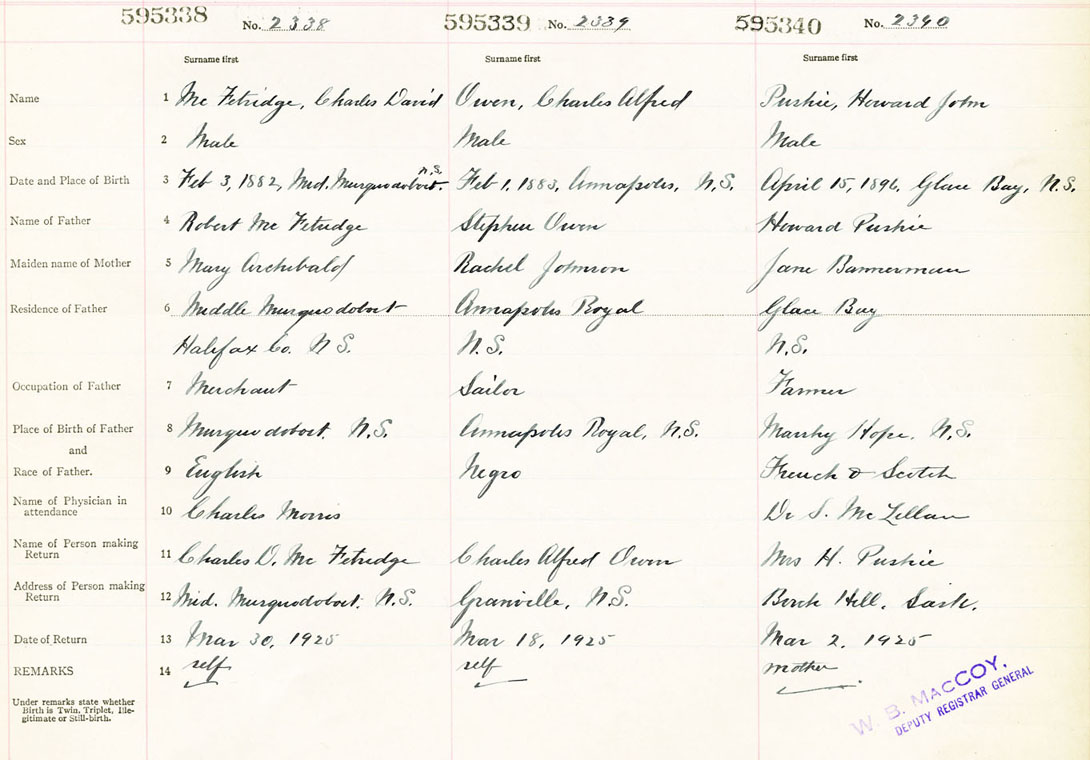 595338 No. 2338 595339 No. 2339 595340 No. 2340
Surname first Surname first Surname first
Name 1 Mc Fetridge, Charles David Owen, Charles Alfred Pushie, Howard John
Sex 2 Male Male Male
N.S.
Date and Place of Birth 3 Feb 3, 1882, Mid. Musquodoboit. Feb 1, 1883, Annapolis, N.S. April 15, 1896, Glace Bay, N.S.
Name of Father 4 Robert Mc Fetridge Stephen Owen Howard Pushie
Maiden name of Mother 5 Mary Archibald Rachel Johnson Jane Bannerman
Residence of Father 6 Middle Musquodoboit Annapolis Royal Glace Bay
Halifax Co. N S. N.S. N.S.
Occupation of Father 7 Merchant Sailor Farmer
Place of Birth of Father 8 Musquodoboit. N.S. Annapolis Royal, N.S. Marshy Hope. N.S.
and
Race of Father. 9 English Negro French & Scotch
Name of Physician in
attendance 10 Charles Morris Dr S. McLellan
Name of Person making
Return 11 Charles D. Mc Fetridge Charles Alfred Owen Mrs H. Pushie
Address of Person making
Return 12 Mid. Musquodoboit. N.S. Granville, N.S. Birch Hill, Sask.
Date of Return 13 Mar 30, 1925 Mar 18, 1925 Mar 2, 1925
REMARKS 14 self self mother
Under remarks state whether
Birth is Twin, Triplet, Ille-
gitimate or Still-birth.
W. B. MacCOY,
DEPUTY REGISTRAR GENERAL